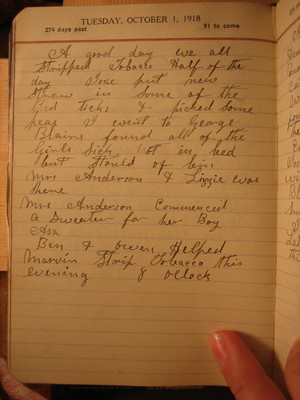 TUESDAY, OCTOBER 1, 1918
274 days past 91 to come
A good day we all
Stripped Tobacco Half of the
day I put new
Straw in some of the
Bed Ticks & picked some
peas I went to George
Blains found all of the
Girls Sick, Not in bed
but
Mrs Anderson & Lizzie was
there
Mrs Anderson Commenced
a Sweater for her Boy
Asa
Ben & Owen Helped
Marvin Strip Tobacco this
evening 8 Oclock